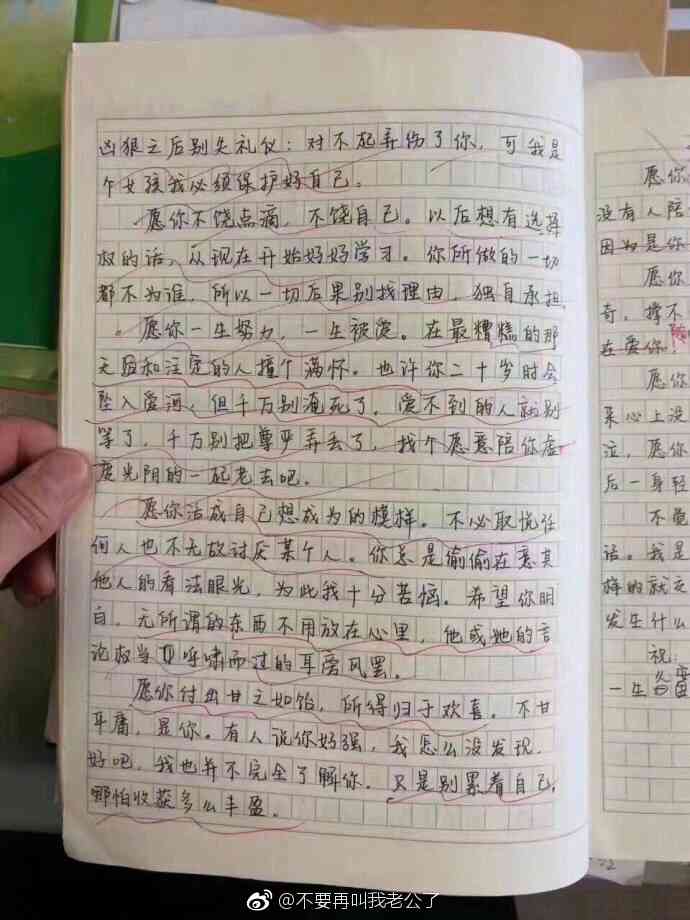 凶狠之后别失礼仪：对不起弄伤了你，可我是
个女孩我必须保护好自己。
愿你不饶点滴，不饶自己。以后想有选择
权的话，从现在开始好好学习。你所做的一切
都不为谁，所以一切后果别找理由，独自承担。
愿你一生努力，一生被爱。在最糟糕的那
天与和注定的人撞个满怀。也许你二十岁时会
坠入爱河，但千万别淹死了，爱不到的人就别
等了，千万别把尊严弄丢了，找个愿意陪你虚
度光阴的一起老去吧。
愿你活成自己想成为的模样。不必取悦任
何人也不无故讨厌某个人。你总是偷偷在意其
他人的看法眼光，为此我十分苦恼。希望你明
白，无所谓的东西不用放在心里，他或她的言
论权当呼啸而过的耳旁风罢。
愿你付出甘之如饴，所得归于欢喜。不甘
平庸，是你。有人说你好强，我怎么没发现，
好吧，我也并不完全了解你。只是别累着自己，
哪怕收获多么丰盈。
愿你
没有人陪
因为是你
愿你
奇，撑不
在爱你
愿你
亲心上没
泣，愿你
后一身轻
不觉
话。我是
样的就交
发生什么
祝：
一生
@不要再叫我老公了